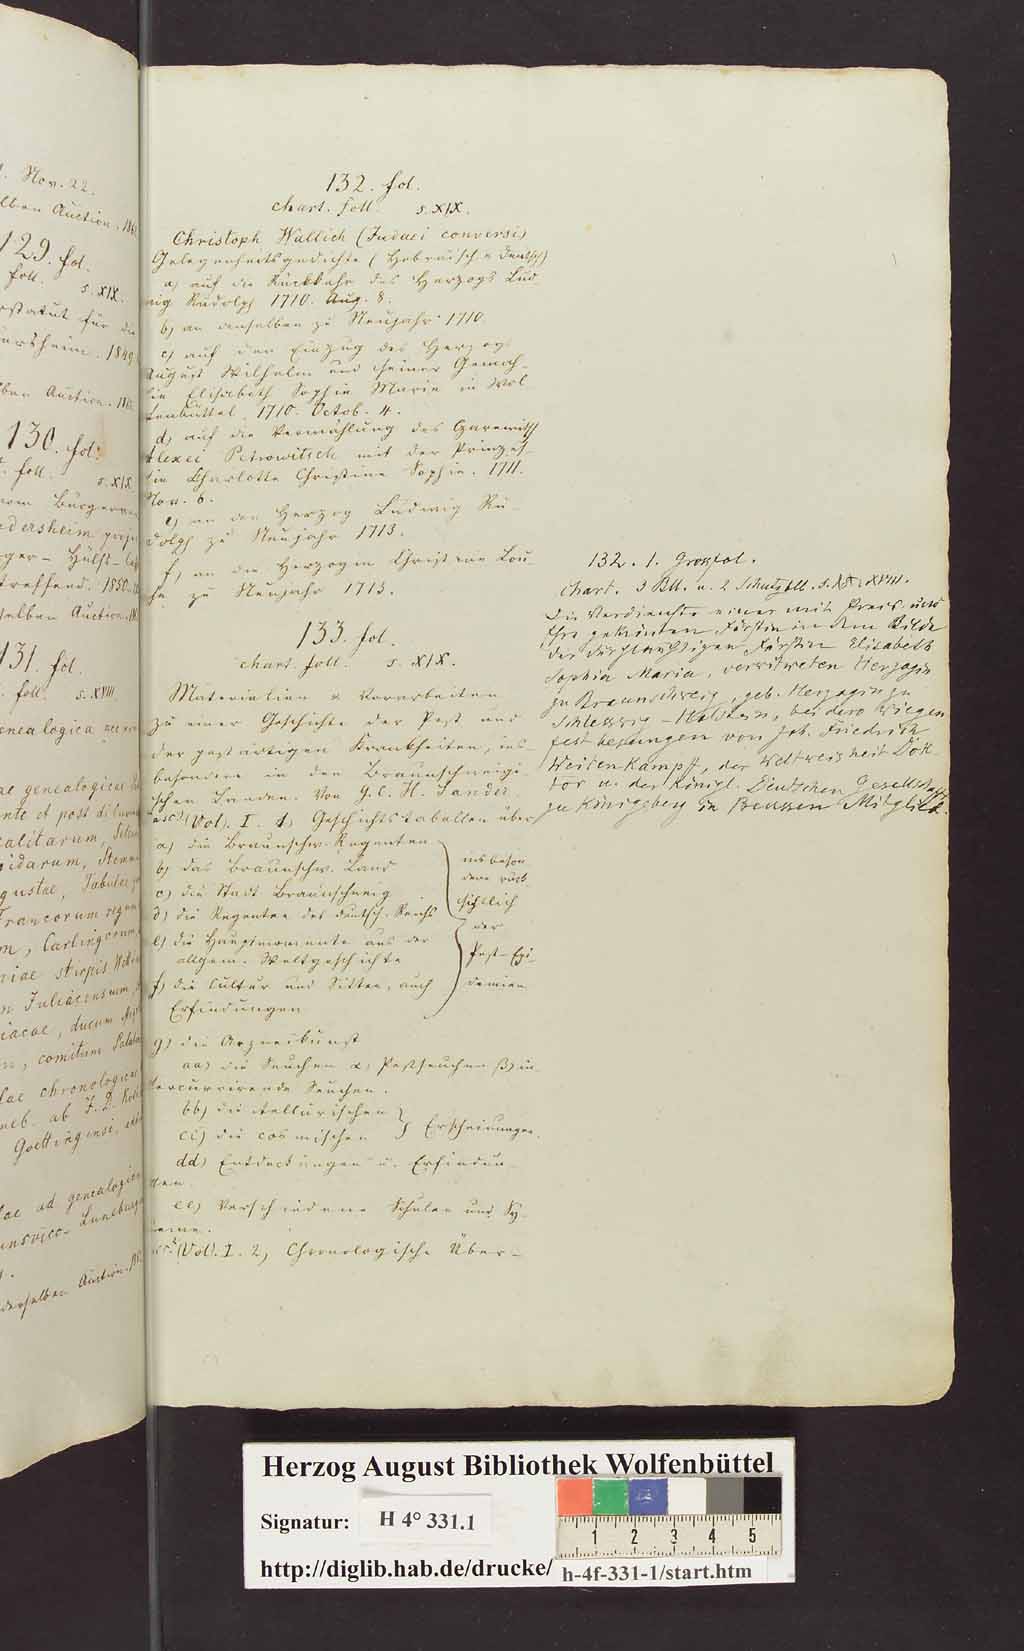 . Nov. 22.
lben Auction. 186
129. fol.
foll. s. XIX.
rstatut für die
urtsheim. 1849
ben Auction. 186
130. fol.
foll. s. XIX.
dersheim proj
ger- Hülfs-
treffend. 1850.
selben Auction.
131. fol.
foll. s. XVIII
enealogica
ae genealogicae
ante et post diluv
calitarum,
idarum, Stemm
gustae, Tabulae
Francorum regum
m, Carlingorum,
riae stirpis
n Juliacensium,
iacae, ducum
n, comitum Palat
lae chronologicae
neb. ab J. D.
Goettingensi,
lae ad genealogiam
unsvico-Luneburg
derselben Auction.
132. fol.
chart. foll. s. XIX.
Christoph Wallich (Judaei conversi)
Gelegenheitsgedichte (Hebräisch & Deutsch)
a) auf die Rückkehr des Herzogs Lud-
wig Rudolph 1710. Aug. 8.
b) an denselben zu Neujahr 1710.
c) auf den Einzug des Herzogs
August Wilhelm und seiner Gemah-
lin Elisabeth Sophie Marie in Wol-
fenbüttel. 1710. Octob. 4.
d) auf die Vermählung des Czarewitsch
Alexei Petrowitsch mit der Prinzes-
sin Charlotte Christine Sophie. 1711.
Nov. 6.
e) an den Herzog Ludwig Ru-
dolph zu Neujahr 1713.
f) an die Herzogin Christine Lou-
se zu Neujahr 1713.
133. fol.
chart. foll. s. XIX.
Materialien & Vorarbeiten
zu einer Geschichte der Pest und
der pestartigen Krankheiten, ins-
besondere in den Braunschweigi-
schen Landen. Von G. C. H. Sander.
(Vol). I. 1) Geschichtstabellen über
a) die Braunschw. Regenten
b) das Braunschw. Land
c) die Stadt Braunschweig
d) die Regenten des deutsch. Reichs
e) die Hauptmomente aus der
allgem. Weltgeschichte
f) die Cultur und Sitten, auch
Erfindungen
insbeson
dere rück
sichtlich
der
Pest-Epi-
demien
g) die Arzneikunst
aa) die Seuchen α) Pestseuchen β) in-
tercurrirende Seuchen.
bb) die tellurischen
cc) die cosmischen } Erscheinungen.
dd) Entdeckungen u. Erfindun-
gen.
ee) Verschiedene Schulen und Sy-
steme.
(Vol). I. 2) Chronologische Über-
132. 1. Grossfol.
chart. 3 Bll. u. 2 Schutzbll. s. XVIII.
Die Verdienste einer mit Preis und
Ehre gekrönten Fürstin in dem Bilde
der durchlauchtigen Fürstin Elisabeth
Sophia Maria, verwitweten Herzogin
zu Braunschweig, geb. Herzogin zu
Schleswig-Holstein, bei dero Wiegen
fest besungen von Joh. Friedrich
Weitenkampff, der Weltweisheit Dok-
tor u. der Königl. Deutschen Gesellschaft
zu Königsberg in Preussen Mitglied.
Herzog August Bibliothek Wolfenbüttel
Signatur: H 4° 331.1
1 2 3 4 5
http://diglib.hab.de/drucke/ h-4f-331-1/start.htm